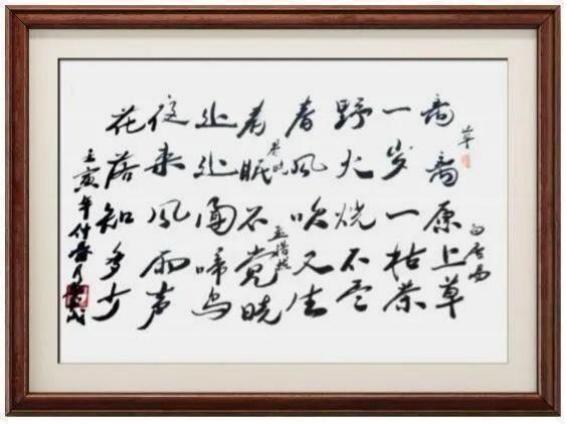 草
离离原上草
白居易
一岁一枯荣
野火烧不尽
春风吹又生
春晓
孟浩然
春眠不觉晓
处处闻啼鸟
夜来风雨声
花落知多少
壬寅年付